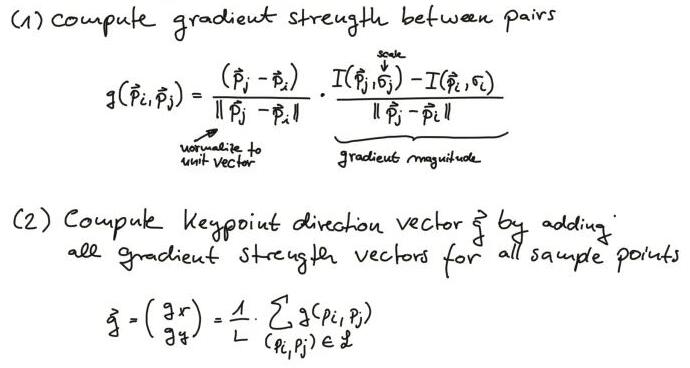 (1) compute gradient strength between pairs
scale
g(p⃗i, p⃗j) = (p⃗j - p⃗i) / ||p⃗j - p⃗i|| · I(p⃗j, σj) - I(p⃗i, σi) / ||p⃗j - p⃗i||
normalize to
unit vector
gradient magnitude
(2) Compute Keypoint direction vector g⃗ by adding
all gradient strength vectors for all sample points
g⃗ = (gx gy) = 1/L · Σ g(pi, pj)
(pi, pj) ∈ ℒ